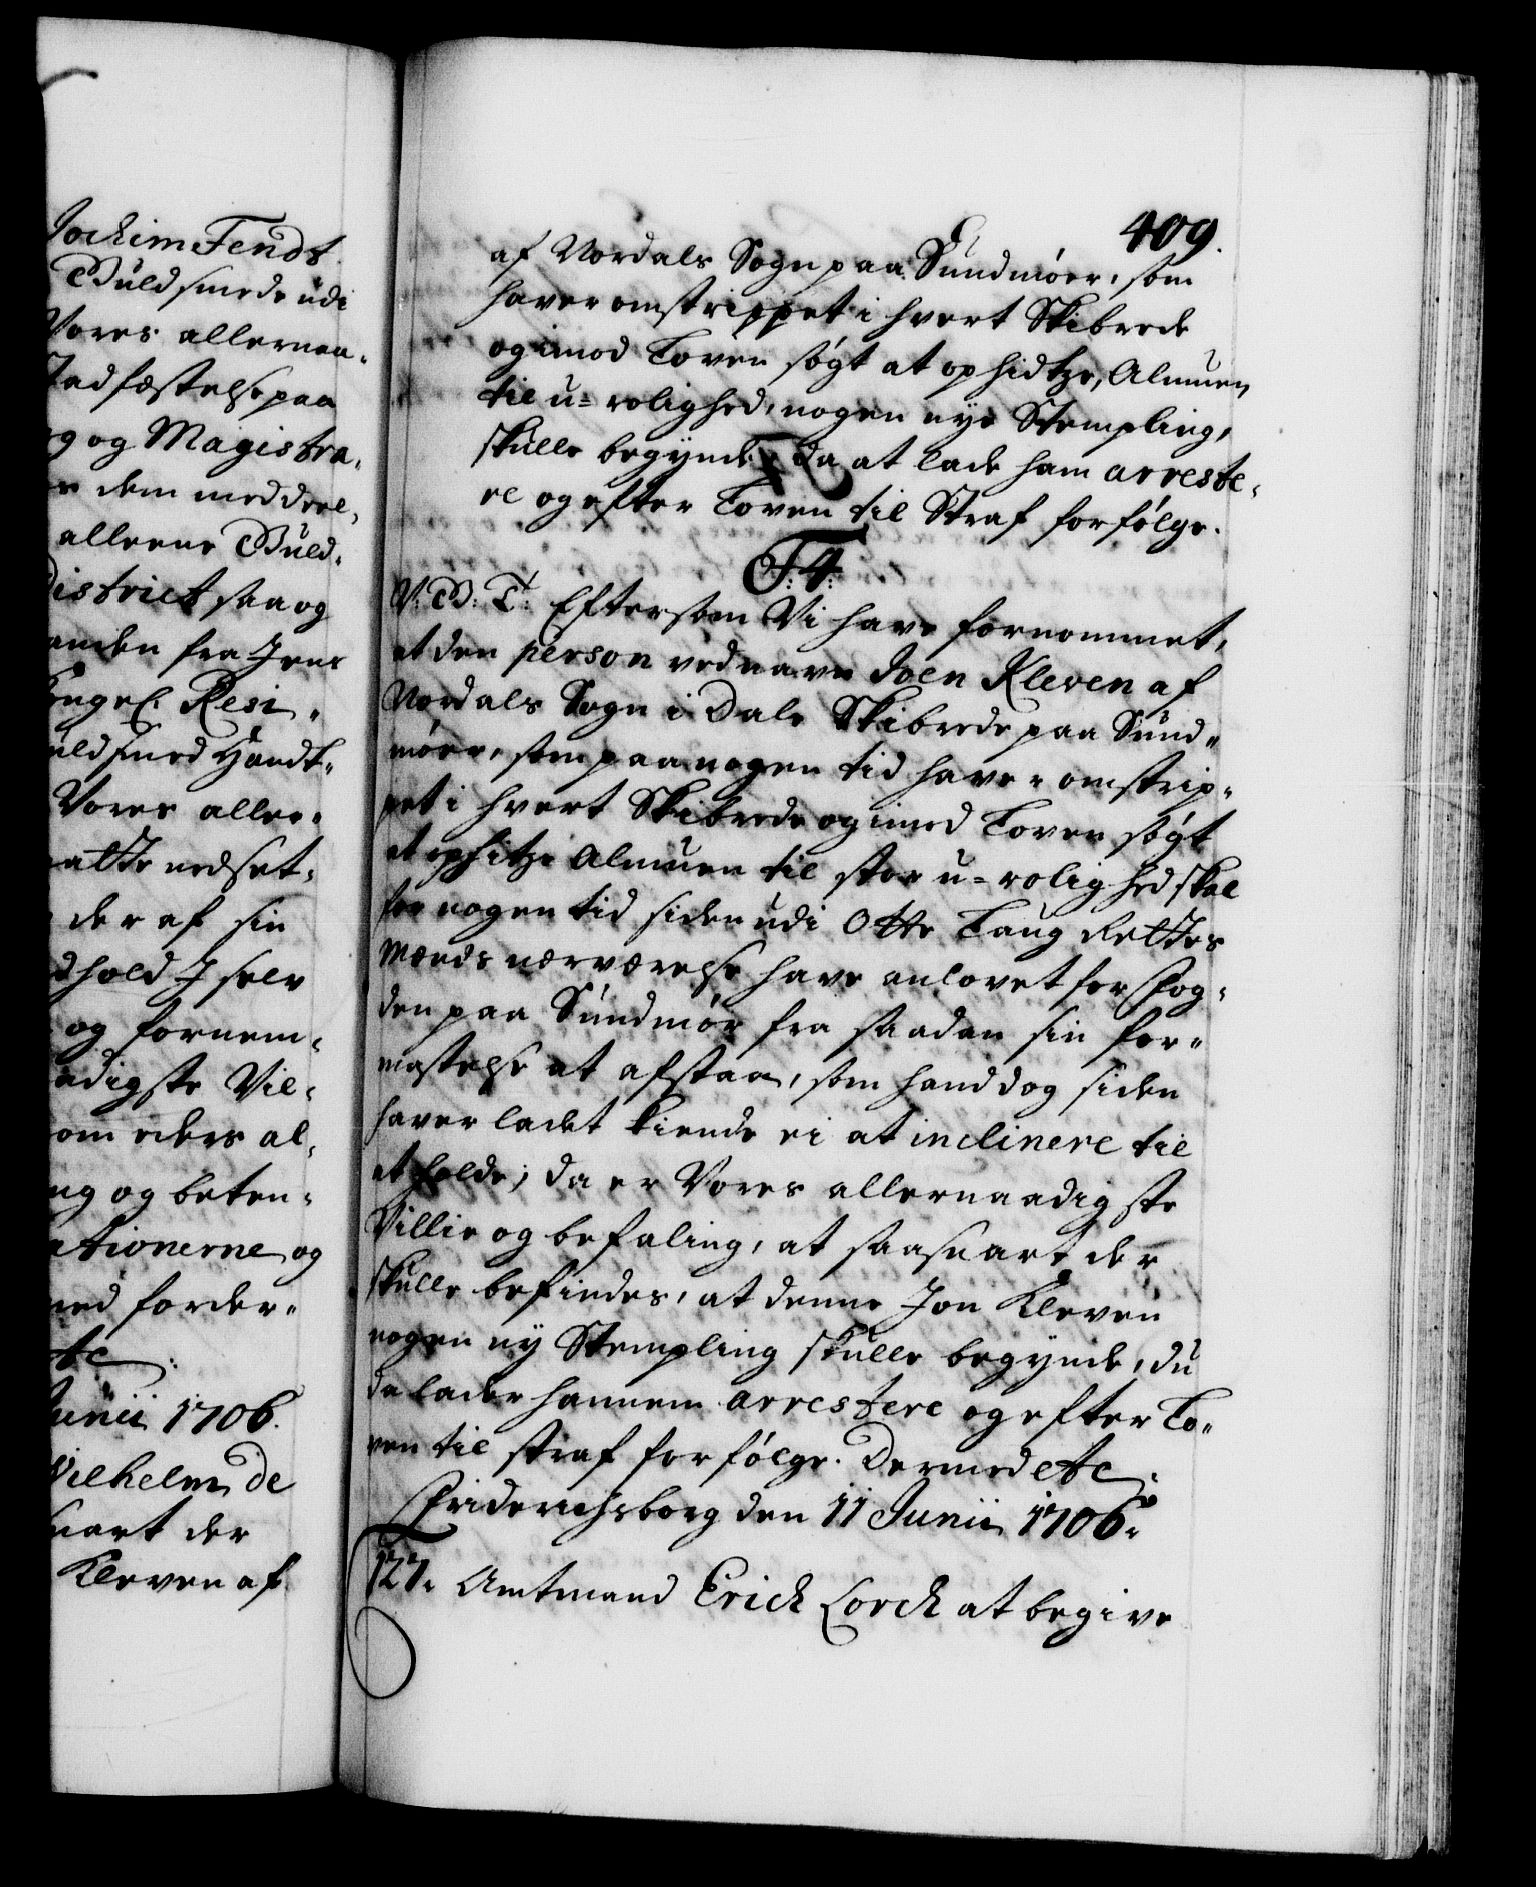 Jochim Fends
Guldsmede udi
Vores allernaa-
Stadfæstelse paa
og Magistra-
dem meddeel-
alleene Guld-
District saa og
anden fra Jens
Kongel. Resi-
uldsmed Handt-
Vores aller-
nedsat-
der af sin
dhold I selv
og fornem-
adigste Vil-
om eders al-
ng og beten-
ationerne og
ned forder-
etc:
Junii 1706.
Wilhelm de
snart der
Kleven af
409.
af Nordals Sogn paa Sundmöer, som
haver omstrippet i hvert Skibrede
og imod Loven søgt at ophidtze, Almuen
til u-rolighed, nogen nye Stempling,
skulle begynde, da at lade ham arreste-
re og efter Loven til Straf forfølge.
F: 4:
V: G: T: Eftersom Vi have fornommet,
at den person ved navn Joen Kleven af
Nordals Sogn i Dale Skibrede paa Sund-
möer, som paa nogen tid haver omstrip-
pet i hvert Skibrede og imod Loven søgt
at ophitze Almuen til stor u-rolighed skal
for nogen tid siden udi Otte Laug Rettes
Mænds nærværelse have anlovet for Fog-
den paa Sundmör fra saadan sin for-
mastelse at afstaa, som hand dog siden
haver ladet kiende ei at inclinere til
at holde; da er Vores allernaadigste
Villie og befaling, at saasnart der
skulle befindes, at denne Jon Kleven
nogen ny Stempling skulle begynde, du
da lader hannem arrestere og efter Lo-
ven til straf forfølge. Dermed etc.
Friderichsborg den 11 Junii 1706.
127. Amtmand Erich Lorch at begive